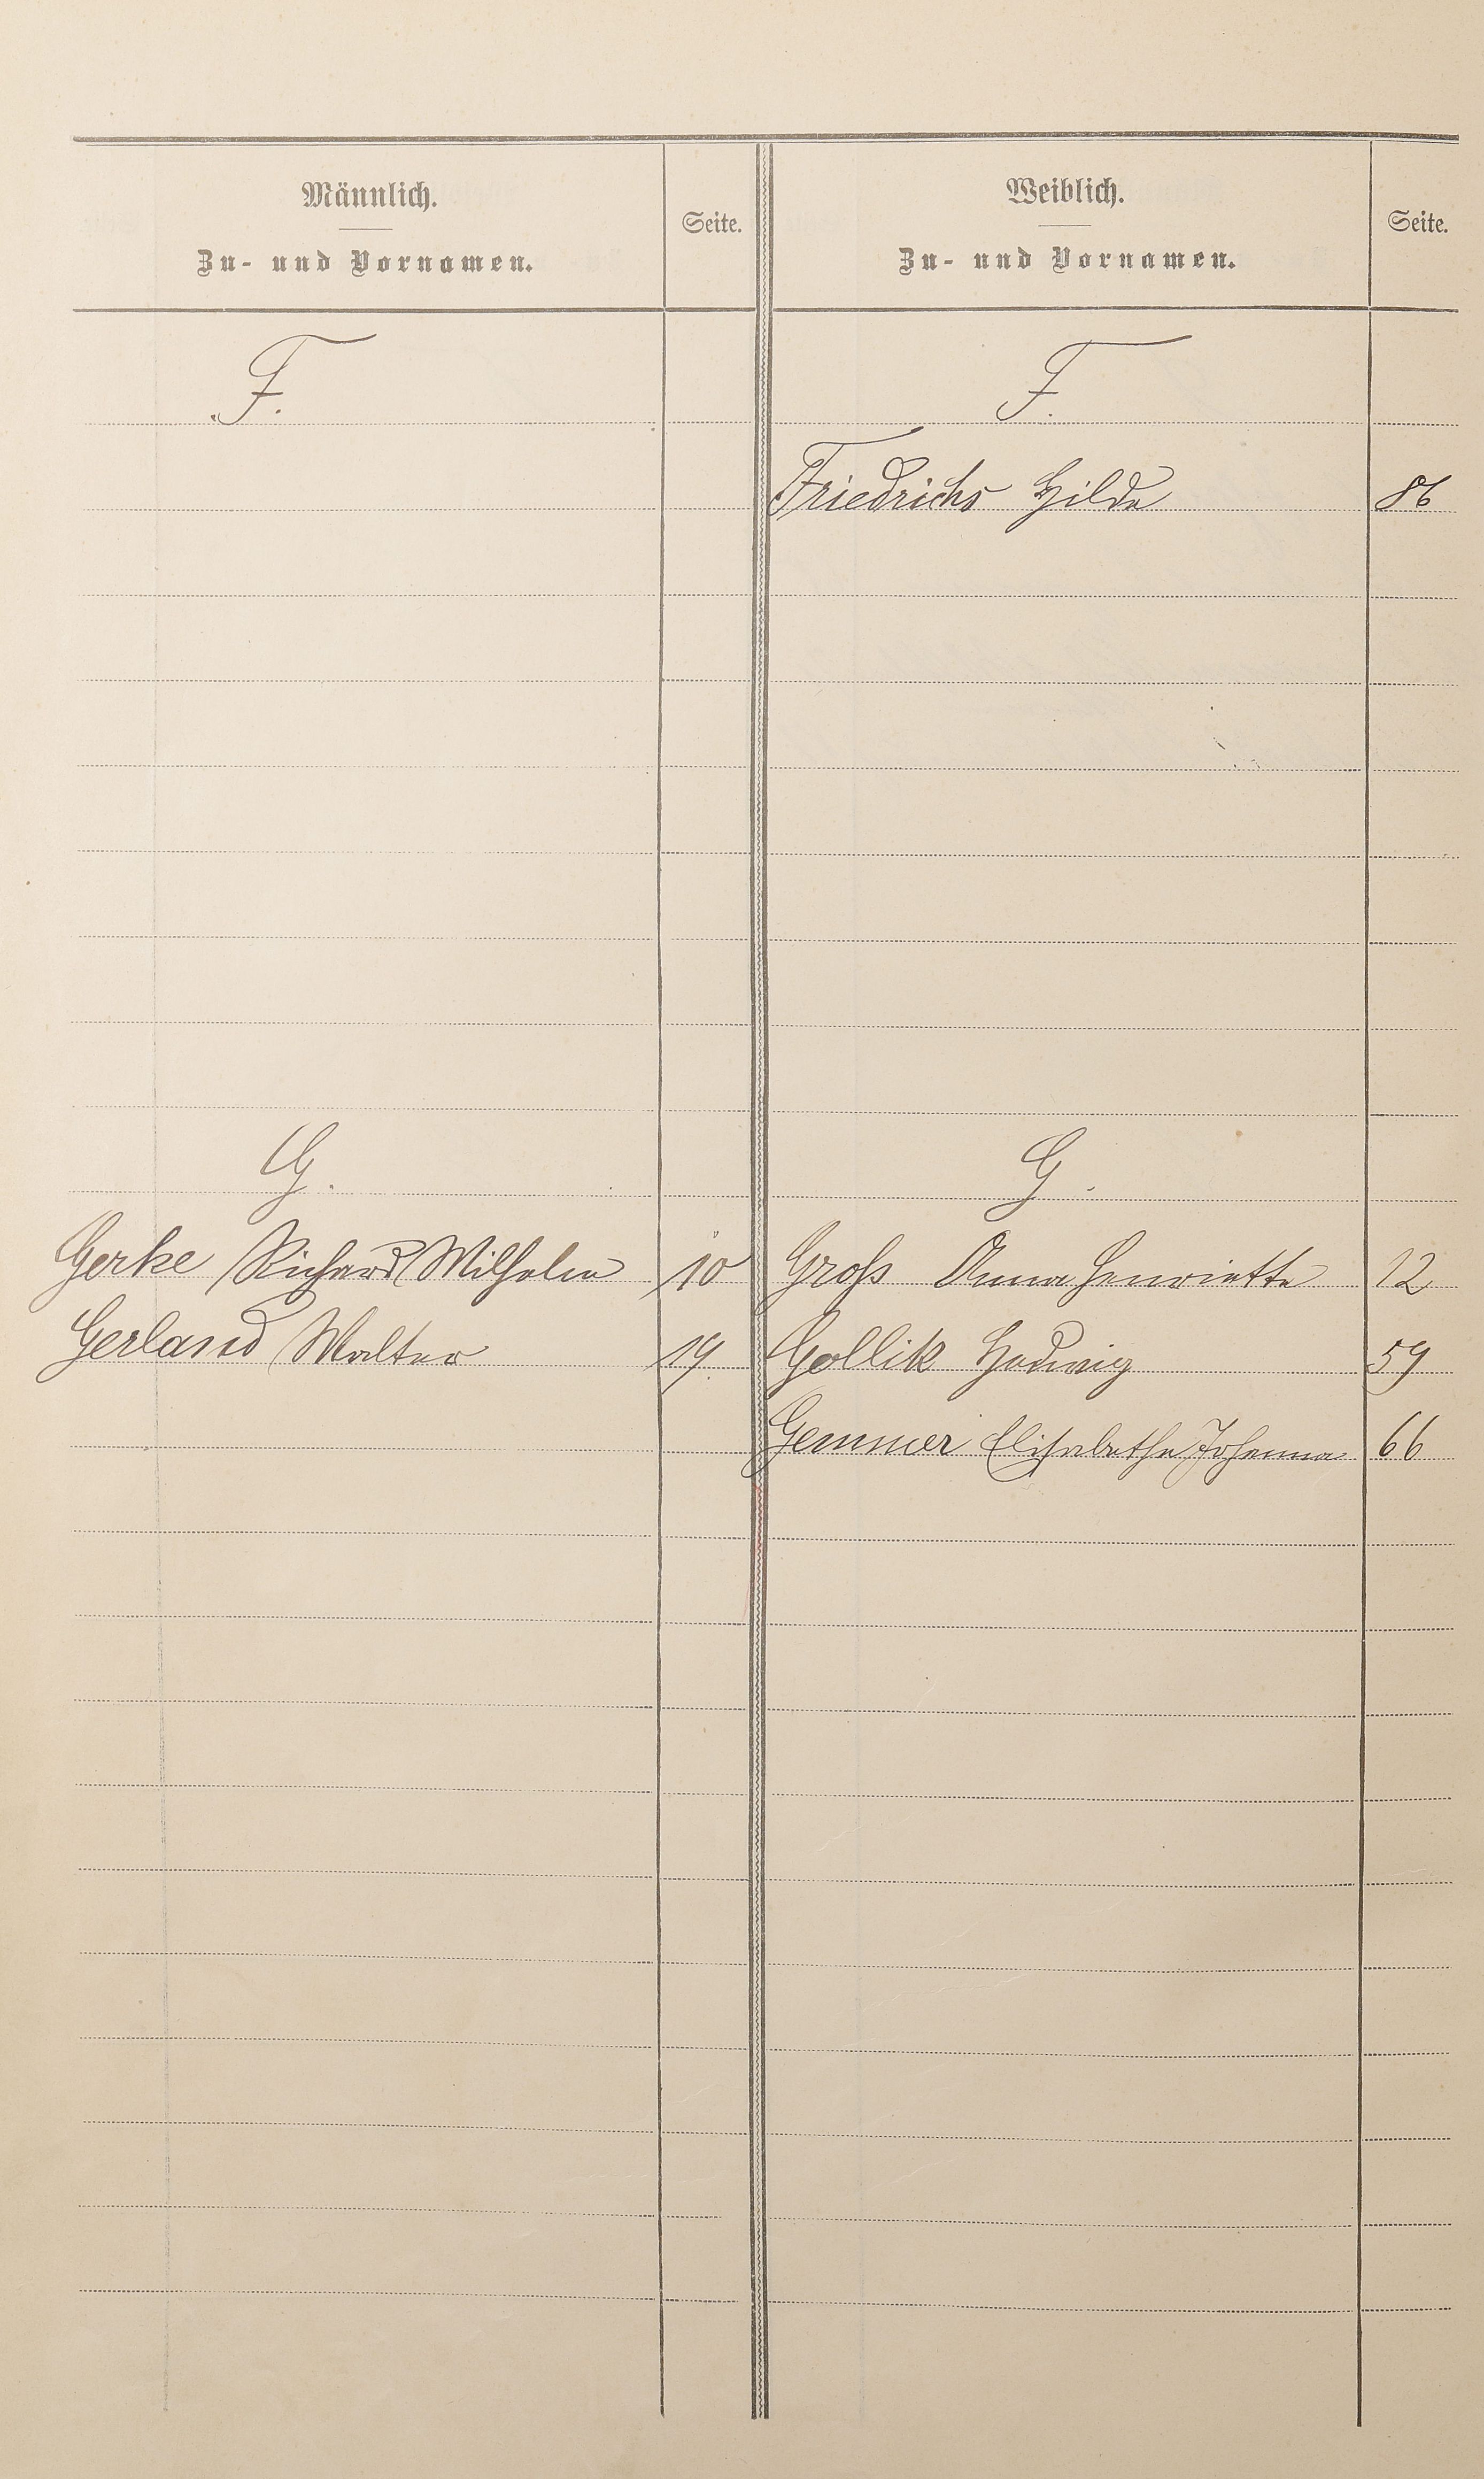 Männlich.
Zu- und Vornamen.
Seite.
Weiblich.
Zu- und Vornamen.
Seite.
F.
F.
Friedrichs Hilda 86
G.
G.
Gerke Richard Wilhelm 10
Groß Anna Henriette 12
Gerland Walter 19.
Gollik Hedwig 59
Gemmer Elisabetha Johanna 66